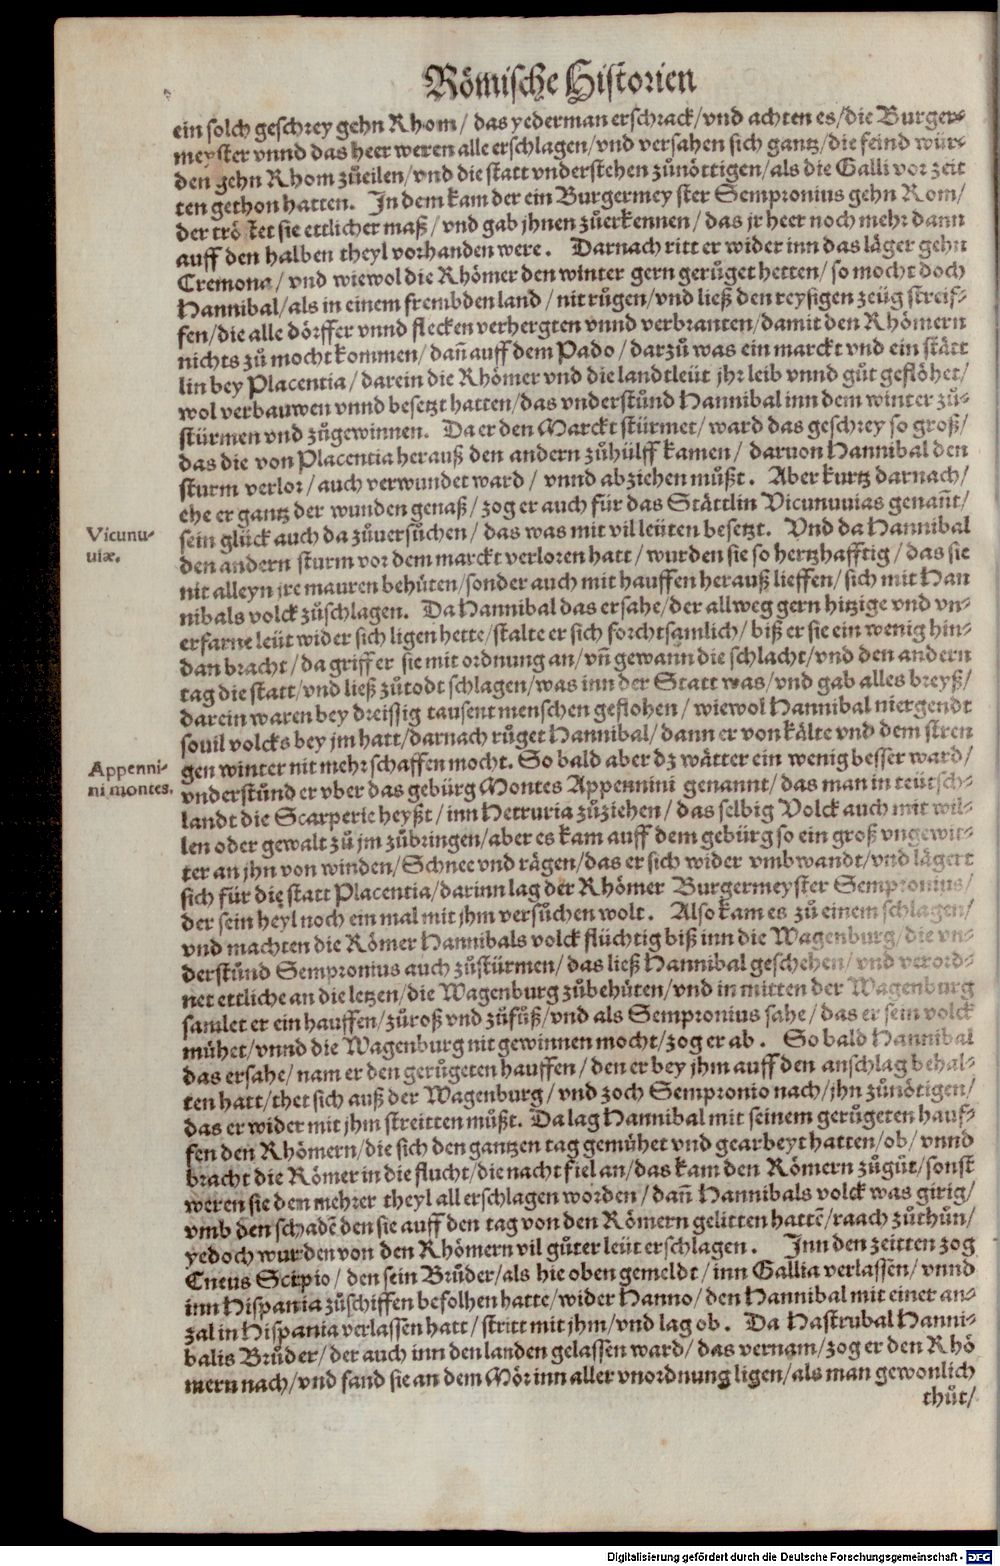 Römische Historien
ein solch geschrey gehn Rhom/ das yederman erschrack/vnd achten es/die Burger-
meyster vnnd das heer weren alle erschlagen/vnd versahen sich gantz/die feind wür-
den gehn Rhom zůeilen/vnd die statt vnderstehen zůnöttigen/als die Galli vor zeit
ten gethon hatten. In dem kam der ein Burgermeyster Sempronius gehn Rom/
der tröstet sie ettlicher maß/ vnd gab jhnen zůerkennen/ das jr heer noch mehr dann
auff den halben theyl vorhanden were. Darnach ritt er wider inn das läger gehn
Cremona/ vnd wiewol die Rhömer den winter gern gerůget hetten/ so mocht doch
Hannibal/als in einem frembden land/ nit růgen/vnd ließ den reysigen zeüg streif-
fen/die alle dörffer vnnd flecken verhergten vnnd verbranten/damit den Rhömern
nichts zů mocht kommen/ dañ auff dem Pado/ darzů was ein marckt vnd ein stätt
lin bey Placentia/ darein die Rhömer vnd die landtleüt jhr leib vnnd gůt geflöhet/
wol verbauwen vnnd besetzt hatten/das vnderstůnd Hannibal inn dem winter zů-
stürmen vnd zůgewinnen. Da er den Marckt stürmet/ ward das geschrey so groß/
das die von Placentia herauß den andern zůhülff kamen/ daruon Hannibal den
sturm verlor/ auch verwundet ward/ vnnd abziehen můßt. Aber kurtz darnach/
ehe er gantz der wunden genaß/ zog er auch für das Stättlin Vicunuuias genañt/
Vicunu-
uiæ.
sein glück auch da zůuersůchen/ das was mit vil leüten besetzt. Vnd da Hannibal
den andern sturm vor dem marckt verloren hatt/ wurden sie so hertzhafftig/ das sie
nit alleyn jre mauren behůten/sonder auch mit hauffen herauß lieffen/ sich mit Han
nibals volck zůschlagen. Da Hannibal das ersahe/der allweg gern hitzige vnd vn-
erfarne leüt wider sich ligen hette/stalte er sich forchtsamlich/ biß er sie ein wenig hin-
dan bracht/ da griff er sie mit ordnung an/ vñ gewann die schlacht/vnd den andern
tag die statt/vnd ließ zůtodt schlagen/was inn der Statt was/vnd gab alles breyß/
darein waren bey dreissig tausent menschen geflohen/ wiewol Hannibal niergendt
souil volcks bey jm hatt/darnach růget Hannibal/ dann er von kälte vnd dem stren
gen winter nit mehr schaffen mocht. So bald aber dz wätter ein wenig besser ward/
Appenni-
ni montes.
vnderstůnd er vber das gebürg Montes Appennini genannt/ das man in teütsch-
landt die Scarperie heyßt/ inn Hetruria zůziehen/ das selbig Volck auch mit wil-
len oder gewalt zů jm zůbringen/aber es kam auff dem gebürg so ein groß vngewit-
ter an jhn von winden/Schnee vnd rägen/das er sich wider vmbwandt/vnd lägert
sich für die statt Placentia/darinn lag der Rhömer Burgermeyster Sempronius/
der sein heyl noch ein mal mit jhm versůchen wolt. Also kam es zů einem schlagen/
vnd machten die Römer Hannibals volck flüchtig biß inn die Wagenburg/die vn-
derstůnd Sempronius auch zůstürmen/das ließ Hannibal geschehen/ vnd verord-
net ettliche an die letzen/die Wagenburg zůbehůten/vnd in mitten der Wagenburg
samlet er ein hauffen/zůroß vnd zůfůß/vnd als Sempronius sahe/das er sein volck
mühet/vnnd die Wagenburg nit gewinnen mocht/zog er ab. So bald Hannibal
das ersahe/ nam er den gerůgeten hauffen/den er bey jhm auff den anschlag behal-
ten hatt/thet sich auß der Wagenburg/ vnd zoch Sempronio nach/jhn zůnötigen/
das er wider mit jhm streitten můßt. Da lag Hannibal mit seinem gerůgeten hauf-
fen den Rhömern/die sich den gantzen tag gemühet vnd gearbeyt hatten/ob/ vnnd
bracht die Römer in die flucht/die nacht fiel an/das kam den Römern zůgůt/sonst
weren sie den mehrer theyl all erschlagen worden/ dañ Hannibals volck was girig/
vmb den schadẽ den sie auff den tag von den Römern gelitten hattẽ/raach zůthůn/
yedoch wurden von den Rhömern vil gůter leüt erschlagen. Inn den zeitten zog
Cneus Scipio/ den sein Brůder/als hie oben gemeldt/ inn Gallia verlassen/ vnnd
inn Hispania zůschiffen befolhen hatte/wider Hanno/ den Hannibal mit einer an-
zal in Hispania verlassen hatt/ stritt mit jhm/vnd lag ob. Da Hastrubal Hanni-
balis Brůder/ der auch inn den landen gelassen ward/ das vernam/ zog er den Rhö
mern nach/vnd fand sie an dem Mör inn aller vnordnung ligen/als man gewonlich
thůt/
Digitalisierung gefördert durch die Deutsche Forschungsgemeinschaft - DFG